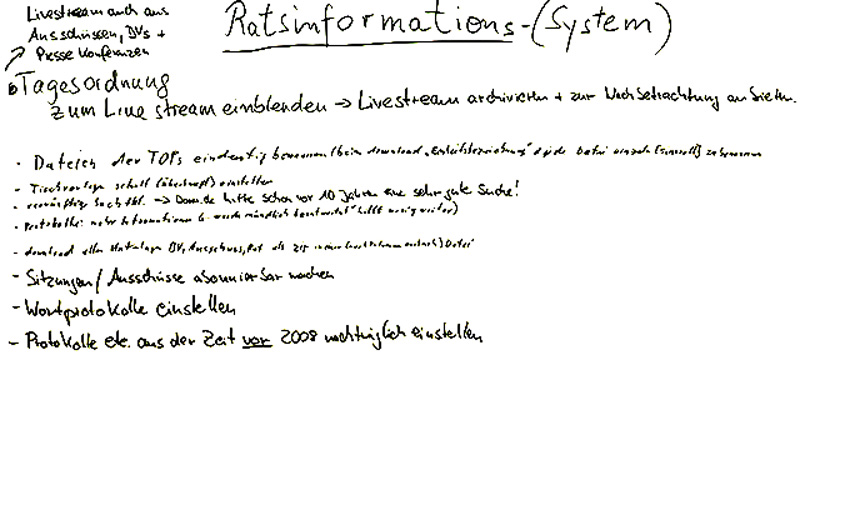 Livestream auch aus
Ausschüssen, BVs +
Presse Konferenzen
Ratsinformations-(System)
Tagesordnung
zum Live stream einblenden → Livestream archivieren + zur Nachbetrachtung anbieten.
- Dateien der TOPs eindeutig benennen (beim download "Einheitsbezeichnung" jede Datei einzeln (sinnvoll) zu benennen
- Tischvorlagen schnell (überhaupt) einstellen
- vernünftige Suchfkt. → Dom.de hatte schon vor 10 Jahren eine sehr gute Suche!
- Protokolle: mehr Informationen ("wurde mündlich beantwortet" hilft wenig weiter)
- download aller Unterlagen BV, Ausschuss, Rat als zip in einer Datei
- Sitzungen/Ausschüsse abonnierbar machen
- Wortprotokolle einstellen
- Protokolle etc. aus der Zeit vor 2008 nachträglich einstellen